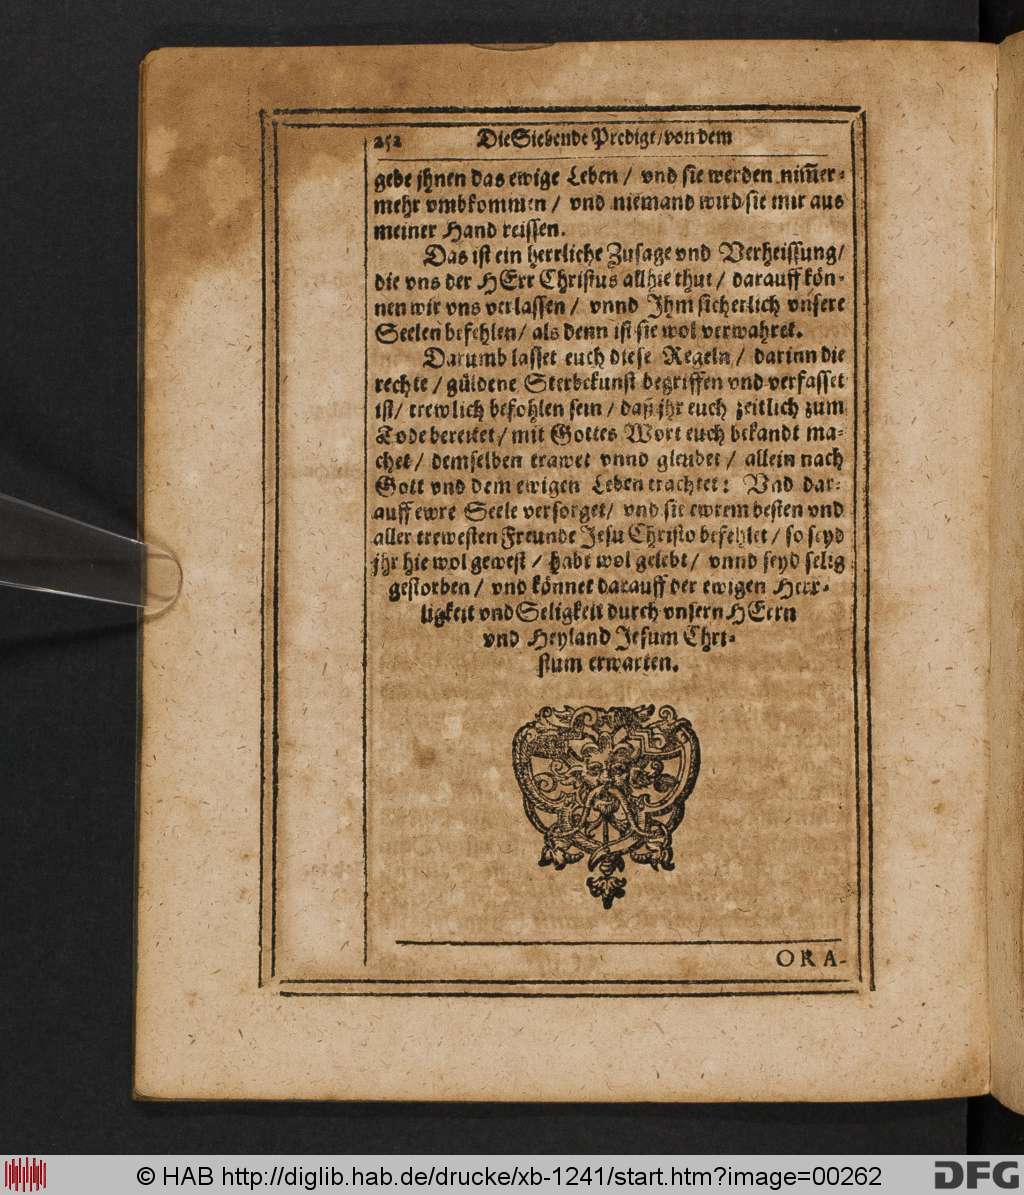 252 Die Siebende Predigt / von dem
gebe jhnen das ewige Leben / vnd sie werden nim̃er⸗
mehr vmbkommen / vnd niemand wird sie mir aus
meiner Hand reissen.
Das ist ein herrliche Zusage vnd Verheissung /
die vns der HErr Christus allhie thut / darauff kön⸗
nen wir vns verlassen / vnnd Jhm sicherlich vnsere
Seelen befehlen / als denn ist sie wol verwahret.
Darumb lasset euch diese Regeln / darinn die
rechte / güldene Sterbekunst begriffen vnd verfasset
ist / trewlich befohlen sein / daß jhr euch zeitlich zum
Tode bereitet / mit Gottes Wort euch bekandt ma⸗
chet / demselben trawet vnnd gleubet / allein nach
Gott vnd dem ewigen Leben trachtet: Vnd dar⸗
auff ewre Seele versorget / vnd sie ewrem besten vnd
aller trewesten Freunde Jesu Christo befehlet / so seyd
jhr hie wol gewest / habt wol gelebt / vnnd seyd selig
gestorben / vnd könnet darauff der ewigen Herr⸗
ligkeit vnd Seligkeit durch vnsern HErrn
vnd Heyland Jesum Chri⸗
stum erwarten.
ORA-
© HAB http://diglib.hab.de/drucke/xb-1241/start.htm?image=00262
DFG